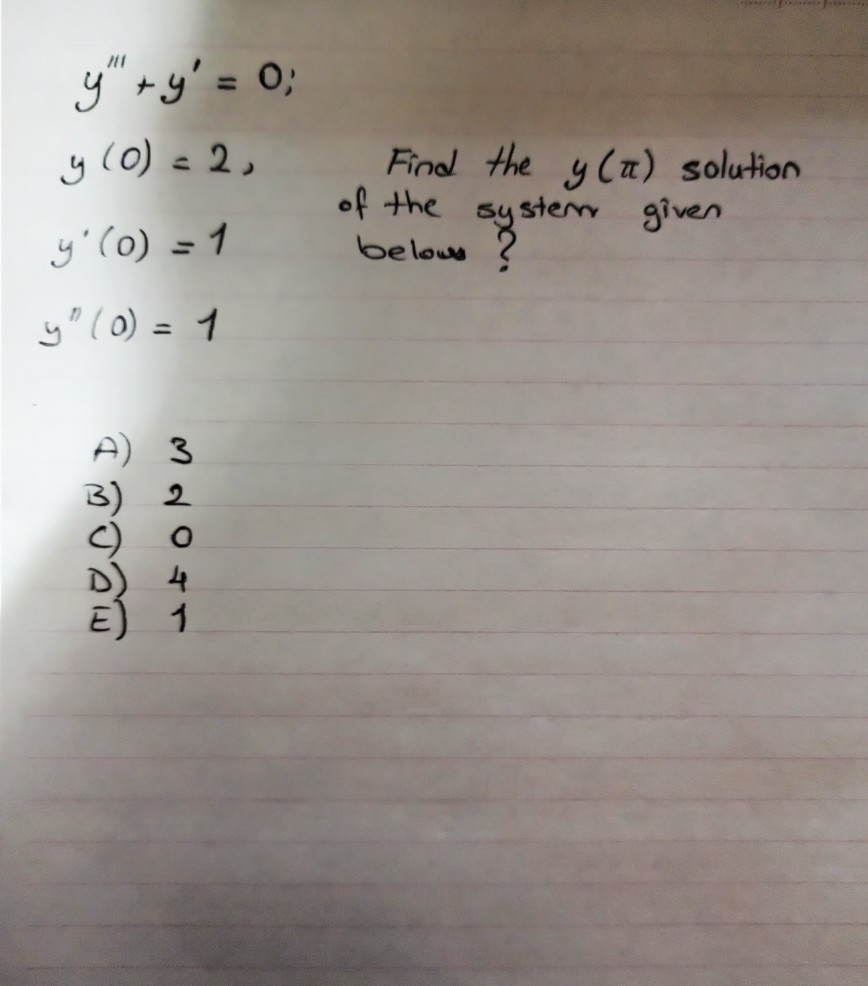 y''' + y' = 0;
y(0) = 2,
y'(0) = 1
y''(0) = 1
Find the y(π) solution
of the system given
below ?
A) 3
B) 2
C) 0
D) 4
E) 1